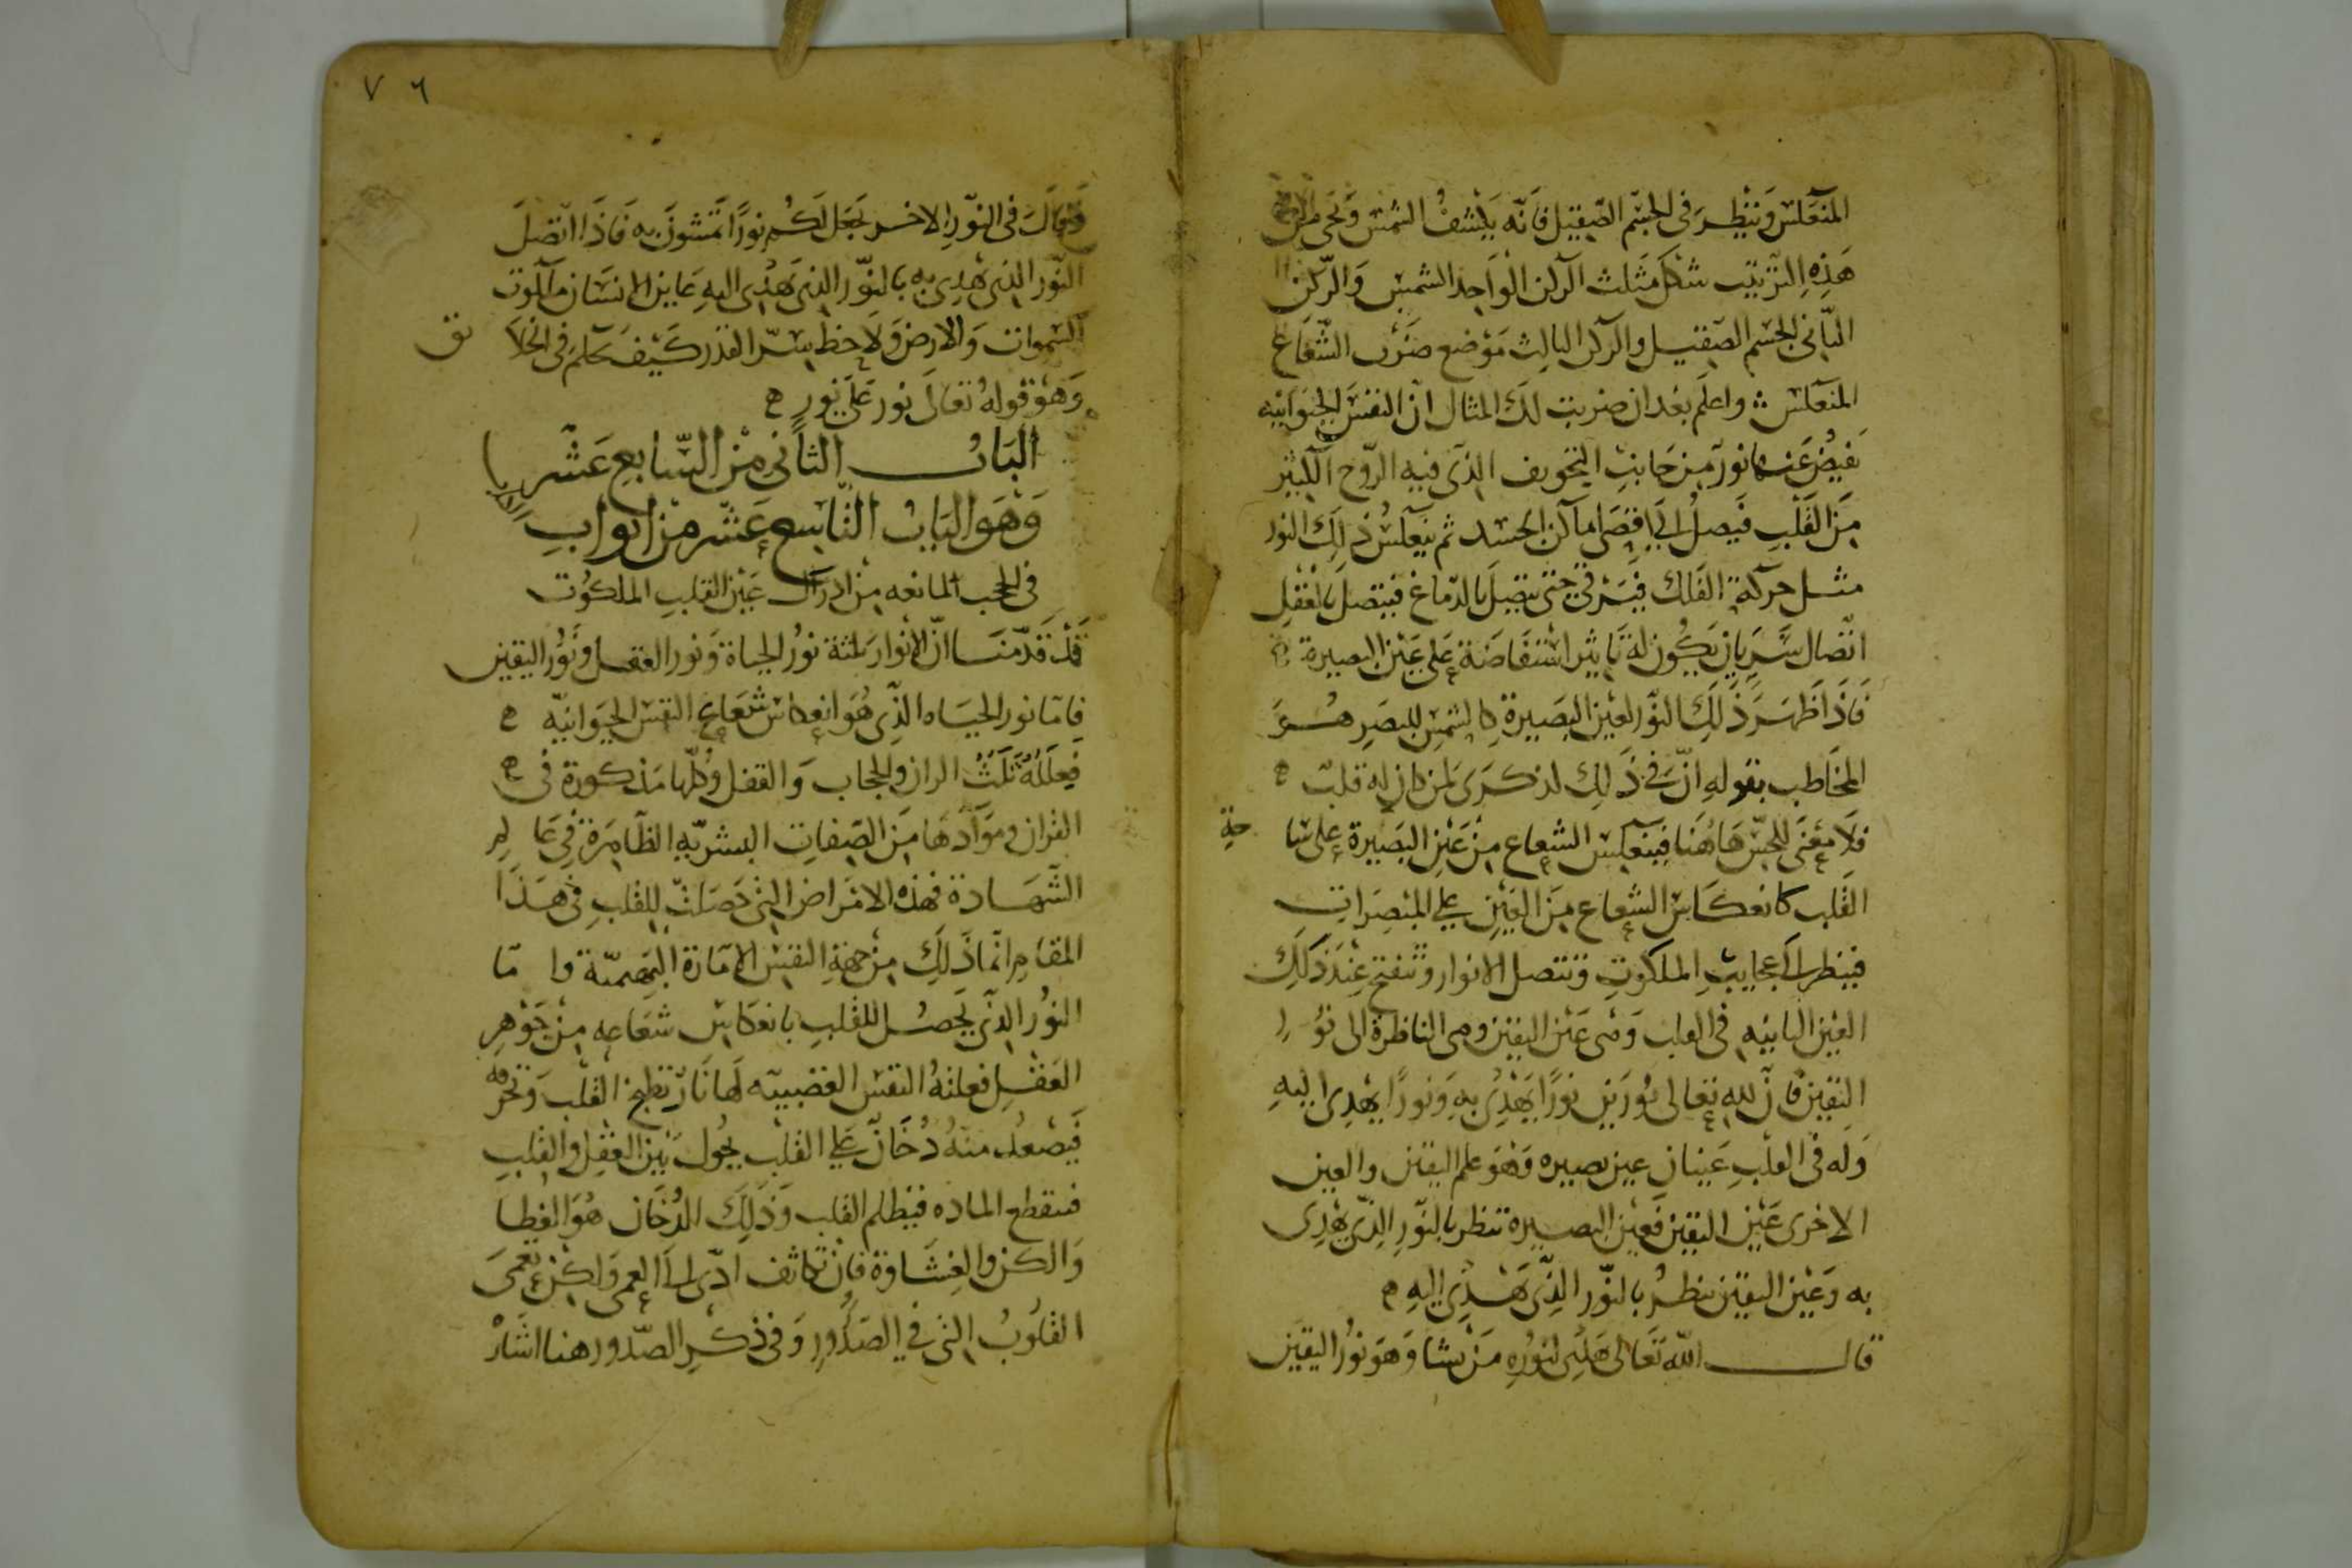 المنعكس وتنظر في الجسم الصقيل فانه يكشف الشمس
هذه الترتيب شكل مثلث الركن الواحد الشمس والركن
الثاني الجسم الصقيل والركن الثالث موضع ضرب الشعاع
المنعكس واعلم بعد ان ضربت لك المثال ان النفس الحيوانيه
يفيض عنها نور من جانب التجويف الذي فيه الروح الكبير
من القلب فيصل الى اقصى اماكن الجسد ثم ينعكس ذلك النور
مثل حركة الفلك فيترقى حتى يتصل بالدماغ فيتصل بالعقل
اتصال سريان يكون له تاثير استفاضة على عين البصيرة ه
فاذا ظهر ذلك النور لعين البصيرة كالشمس للبصر هو
المخاطب بقوله ان في ذلك لذكرى لمن كان له قلب ه
فلا معنى للحس هاهنا فينعكس الشعاع من عين البصيرة على سا حة
القلب كانعكاس الشعاع من العين على المبصرات
فينظر الى عجايب الملكوت وتتصل الانوار وتنفتح عند ذلك
العين الثانيه في القلب وهي عين اليقين وهي الناظرة الى نور
اليقين فان لله تعالى نورين نورا يهدى به ونورا يهدى اليه
وله في القلب عينان عين بصيره وهو علم اليقين والعين
الاخرى عين اليقين فعين البصيرة تنظر بالنور الذي يهدى
به وعين اليقين تنظر بالنور الذي يهدى اليه ه
قال الله تعالى يهدى لنوره من يشا وهو نور اليقين
٧٦
وقال في النور الاخر يجعل لكم نورا تمشون به فاذا اتصل
النور الذي يهدى به بالنور الذي يهدى اليه عاين الانسان ملكوت
السموات والارض ولاحظ سر القدر كيف حكم في الخلا ئق
وهو قوله تعالى نور على نور ه
الباب الثاني من السابع عشر
وهو الباب التاسع عشر من ابواب الكتاب
في الحجب المانعه من ادراك عين القلب الملكوت
قد قدمنا ان الانوار ثلثة نور الحياة ونور العقل ونور اليقين
فاما نور الحياه الذي هو انعكاس شعاع النفس الحيوانيه ه
فعلله ثلث الران والحجاب والقفل وكلها مذكورة في ه
القران وموادها من الصفات البشريه الظاهرة في عا لم
الشهادة فهذه الامراض التي حصلت للقلب في هذا
المقام انما ذلك من جهة النفس الامارة البهيميه واما
النور الذي يحصل للقلب بانعكاس شعاعه من جوهر
العقل فعلته النفس الغضبيه لها نار تطبخ القلب وتحرقه
فيصعد منه دخان على القلب يحول بين العقل والقلب
فتنقطع الماده فيظلم القلب وذلك الدخان هو الغطا
والكن والغشاوة فان تكاثف ادى الى العمى ولكن تعمى
القلوب التي في الصدور وفي ذكر الصدور هنا اشار